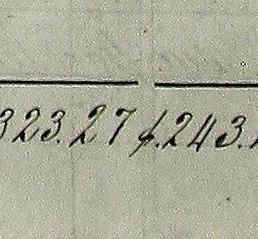 323.27 $.243.